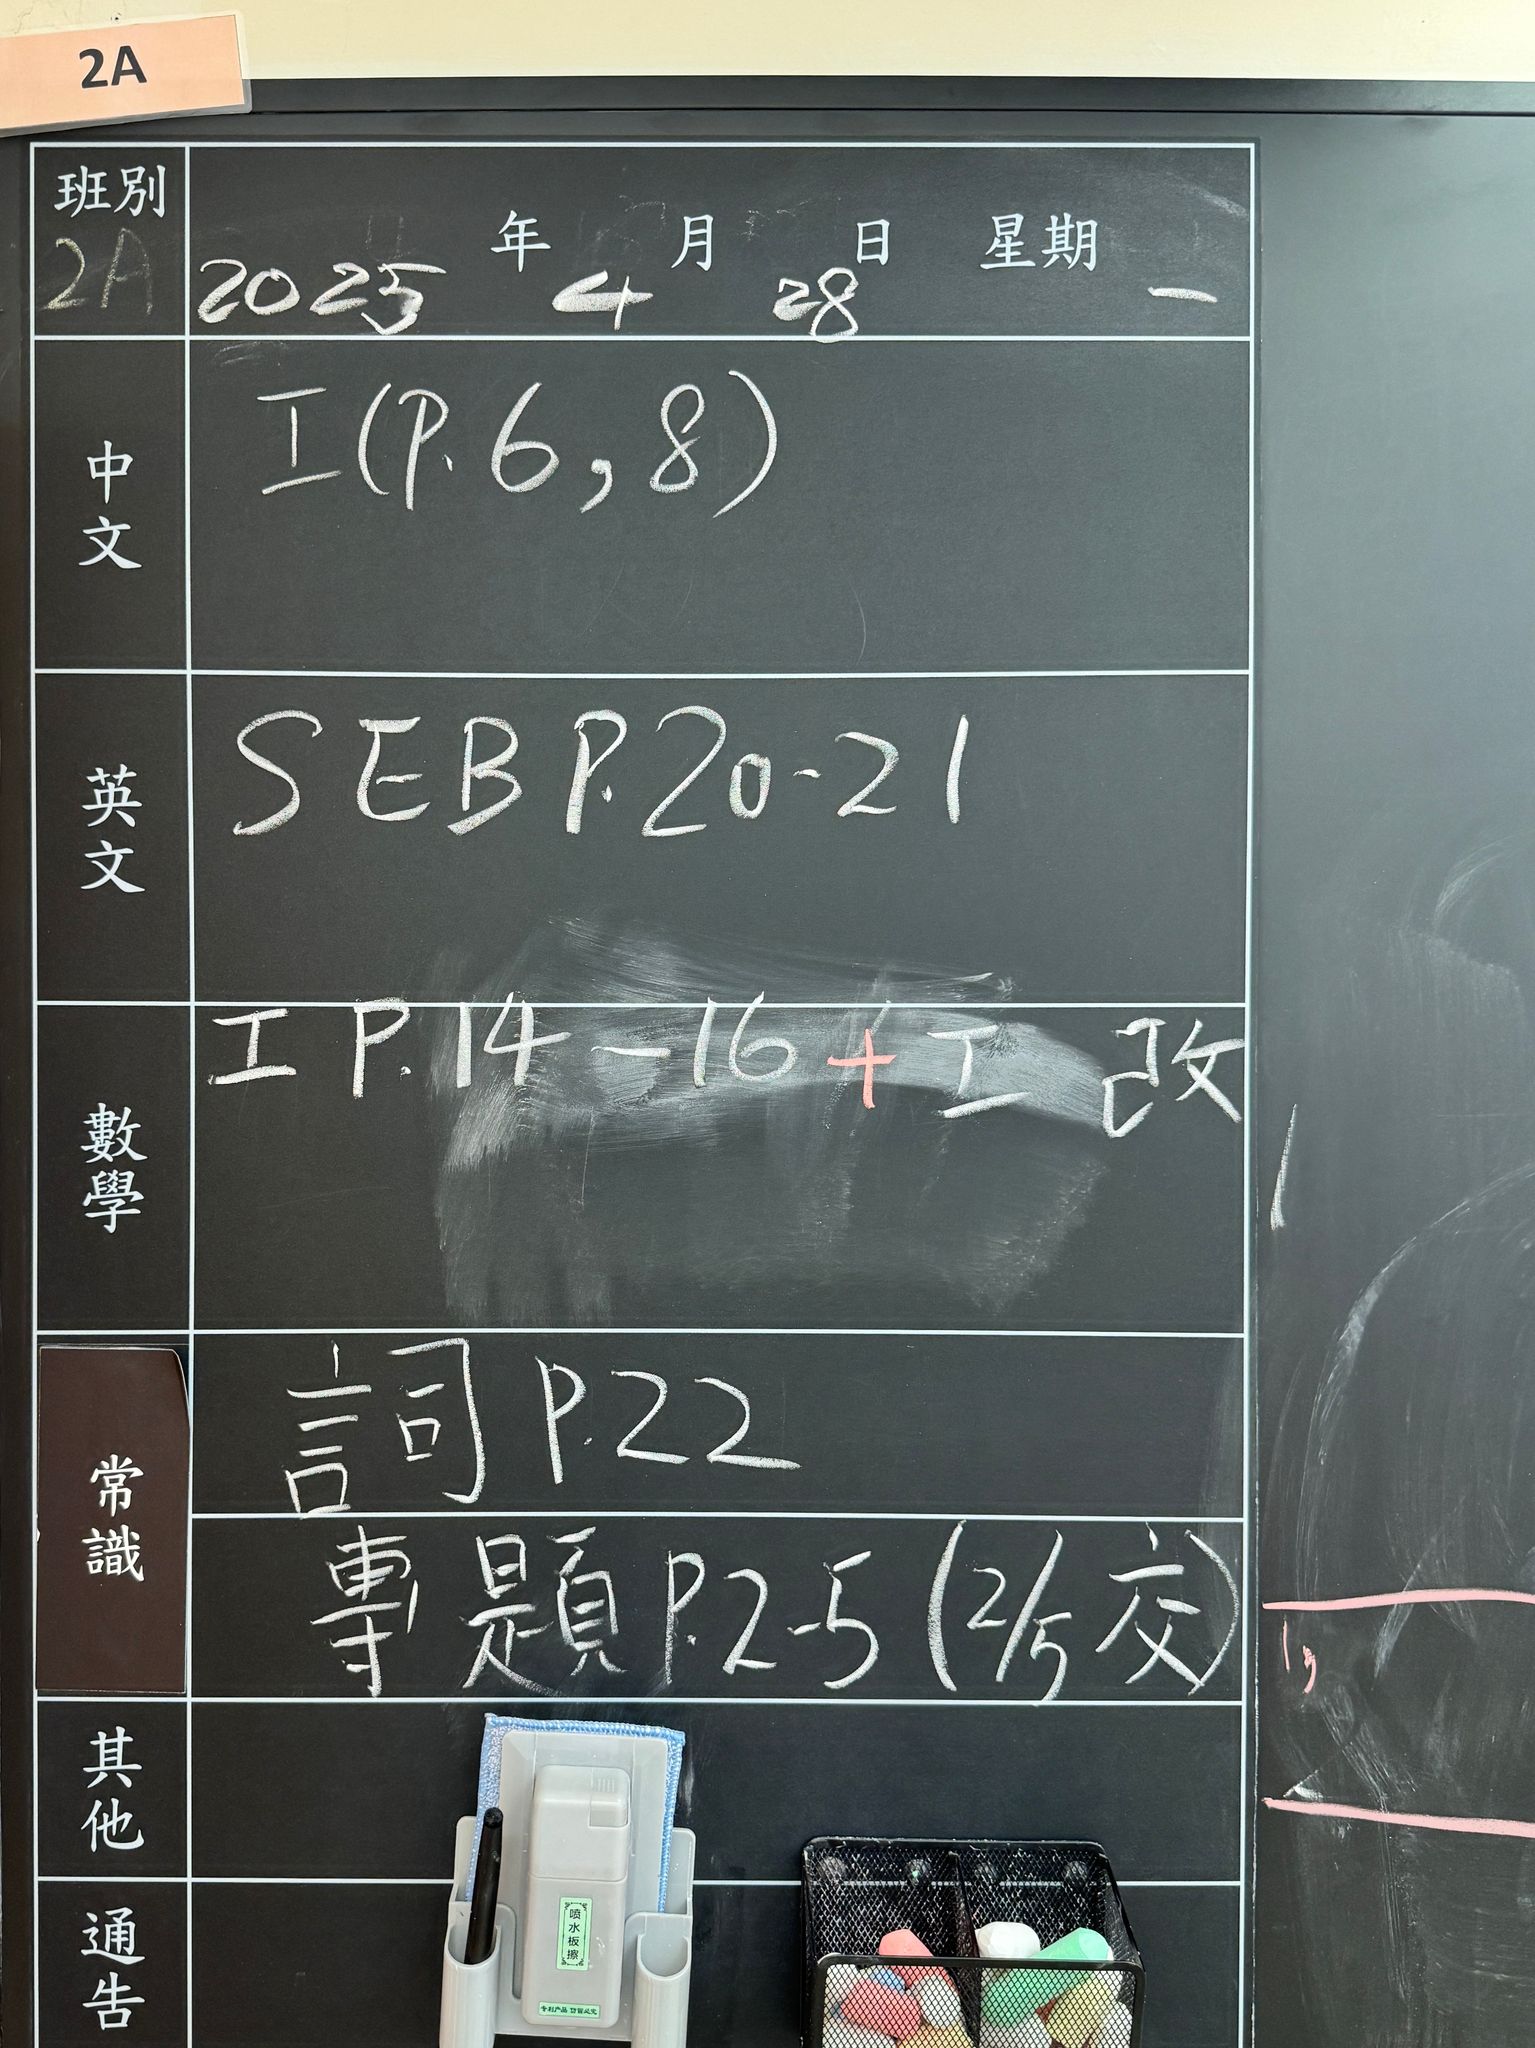 2A
班別
2A
年 月 日 星期
2025 4 28 一
中文
工(P.6,8)
英文
SEB P.20-21
數學
工 P.14-16 + 工 改
常識
詞 P.22
專題 P.2-5 (2/5 交)
其他
通告
喷水板擦
专利产品 仿冒必究